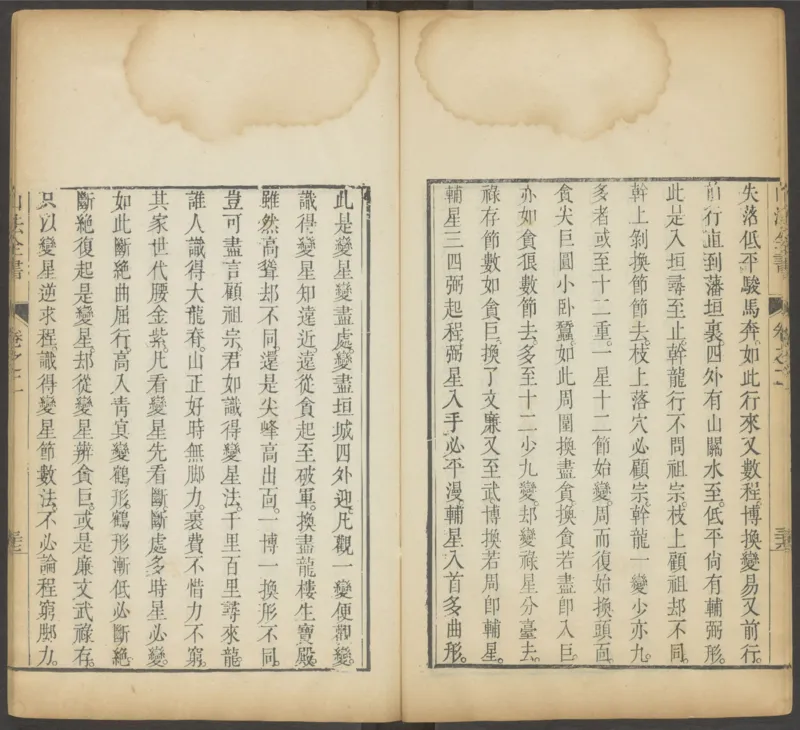 失落低平駿馬奔。如此行來又數程。博換變易又前行。
前行直到藩垣裏。四外有山關水至。低平尚有輔弼形。
此是入垣尋至止。幹龍行不問祖宗。枝上顧祖却不同。
幹上剝換節節去。枝上落穴必顧宗。幹龍一變少亦九。
多者或至十二重。一星十二節始變。周而復始換頭面。
貪尖巨圓小卧蠶。如此周圍換盡貪。換貪若盡卽入巨。
亦如貪狠數節去。多至十二少九變。却變祿星分臺去。
祿存節數如貪巨。換了文廉又至武。博換若周卽輔星。
輔星三四弼起程。弼星入手必平漫。輔星入首多曲形。
此是變星變盡處。變盡垣城四外迎。凡觀一變便觀變。
識得變星知遠近。遠從貪起至破軍。換盡龍樓生寶殿。
雖然高聳却不同。還是尖峰高出面。一博一換形不同。
豈可盡言顧祖宗。君如識得變星法。千里百里尋來龍。
誰人識得大龍脊。山正好時無脚力。裹費不惜力不窮。
其家世代腰金紫。凡看變星先看斷。斷處多時星必變。
如此斷絕曲屈行。高入青寘變鶴形。鶴形漸低必斷絕。
斷絕復起是變星。却從變星辨貪巨。或是廉文武祿存。
只以變星逆求程。識得變星節數法。不必論程窮脚力。
山法全書
卷之二